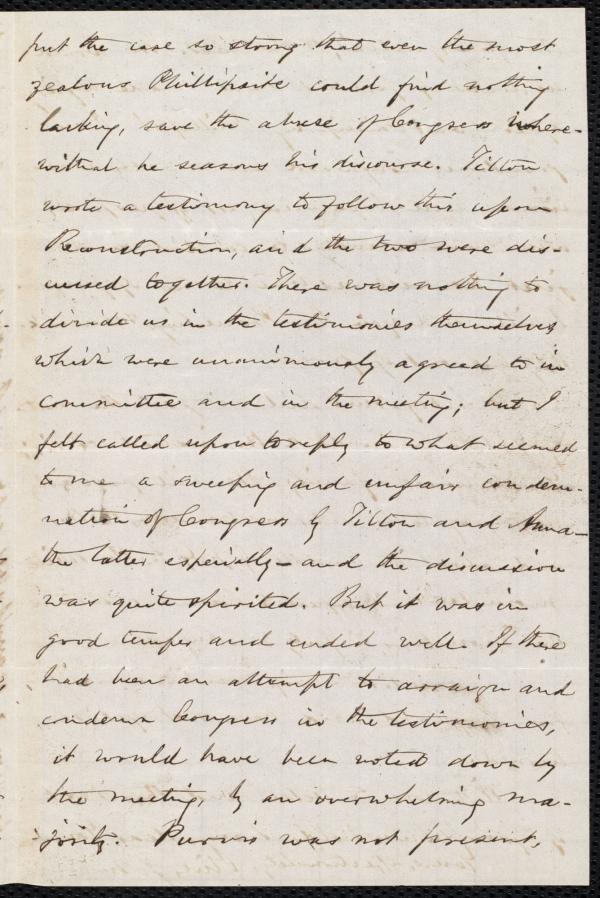 put the case so strong that even the most
zealous Phillipsite could find nothing
lacking, save the abuse of Congress where-
withal he seasons his discourse. Tilton
wrote a testimony to follow this upon
Reconstruction, and the two were dis-
cussed together. There was nothing to
divide us in the testimonies themselves
which were unanimously agreed to in
committee and in the meeting; but I
felt called upon to reply to what seemed
to me a sweeping and unfair condem-
nation of Congress by Tilton and Anna—
the latter especially—and the discussion
was quite spirited. But it was in
good temper and ended well. If there
had been an attempt to arraign and
condemn Congress in the testimonies,
it would have been voted down by
the meeting, by an overwhelming ma-
jority. Purvis was not present,